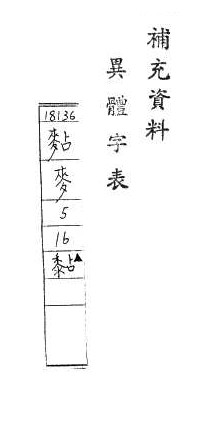 補充資料
異體字表
18136
麥
5
16
黏▲